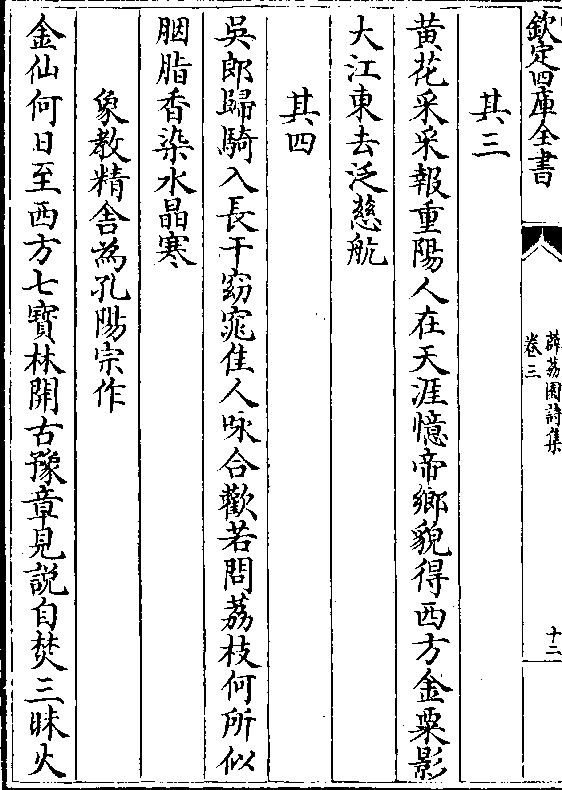 欽定四庫全書
薜荔園詩集
卷三
十二
其三
黃花采采報重陽人在天涯憶帝鄉貌得西方金粟影
大江東去泛慈航
其四
吳郎歸騎入長干窈窕佳人咏合歡若問荔枝何所似
胭脂香染水晶寒
象教精舍為孔陽宗作
金仙何日至西方七寳林開古豫章見說自焚三昧火